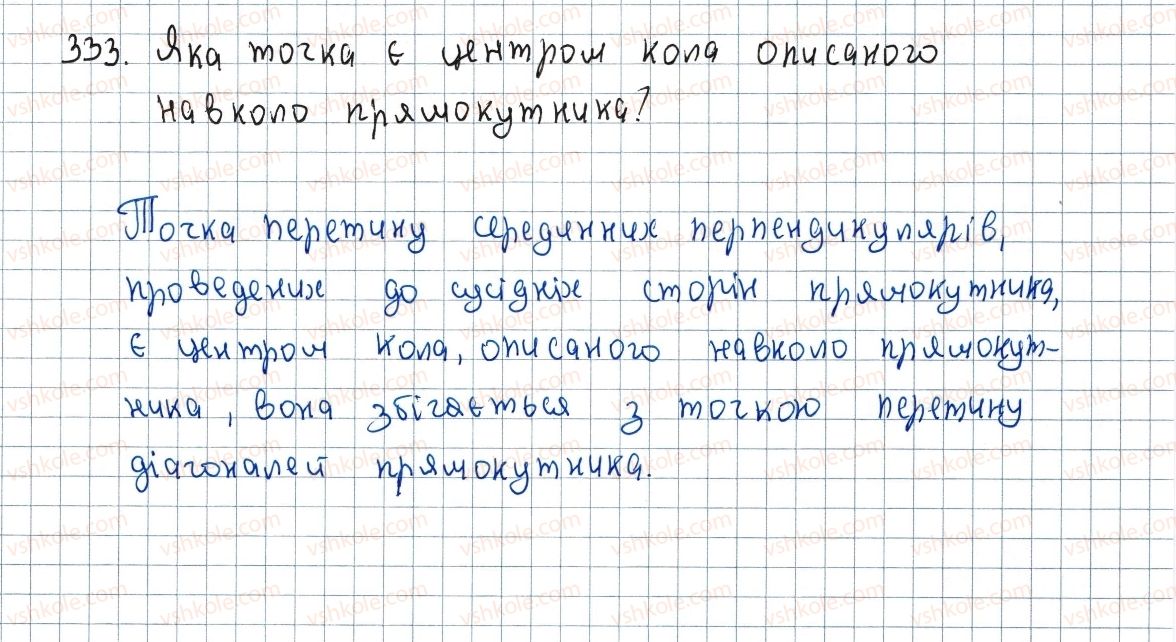 333. Яка точка є центром кола описаного
навколо прямокутника?
Точка перетину серединних перпендикулярів,
проведених до сусідніх сторін прямокутника,
є центром кола, описаного навколо прямокут-
ника, вона збігається з точкою перетину
діагоналей прямокутника.